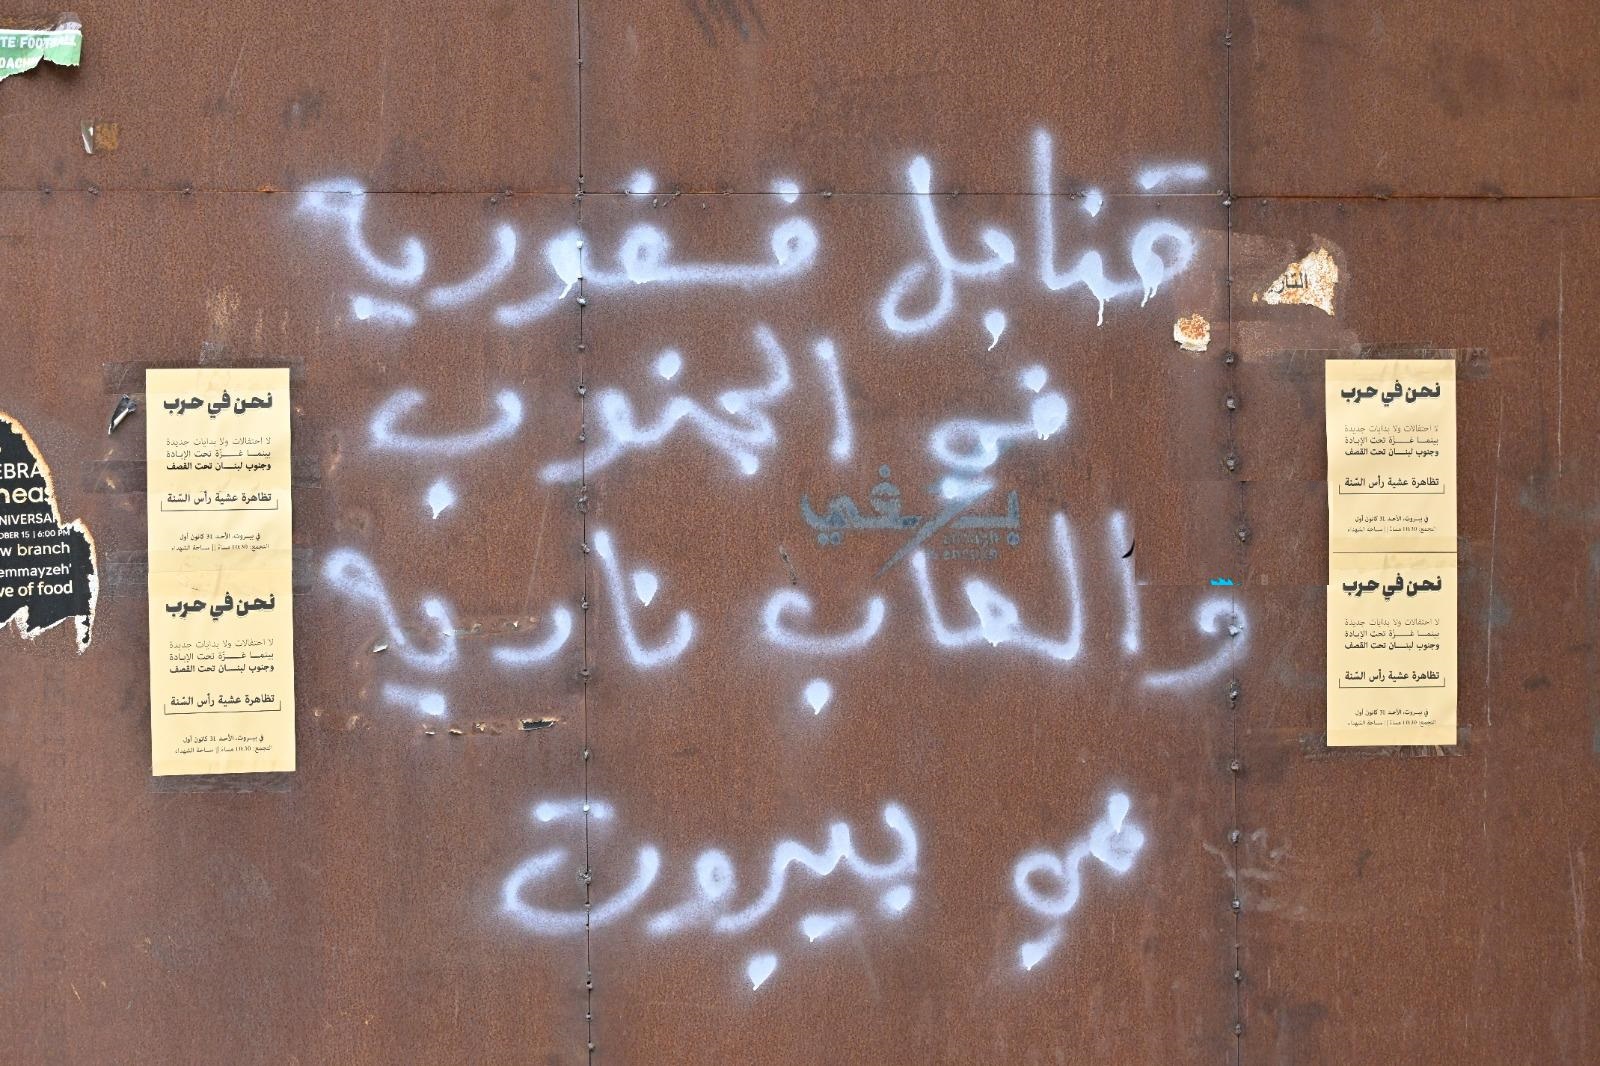 قنابل فسفورية
في الجنوب
والعاب نارية
في بيروت
نحن في حرب
لا احتفالات ولا بدايات جديدة
بينما غـــزّة تحت الإبادة
وجنوب لبنـــان تحت القصف
تظاهرة عشية رأس السّنة
في بيروت، الأحد 31 كانون أول
التجمع: 10:30 مساءً || ساحة الشهداء
نحن في حرب
لا احتفالات ولا بدايات جديدة
بينما غـــزّة تحت الإبادة
وجنوب لبنـــان تحت القصف
تظاهرة عشية رأس السّنة
في بيروت، الأحد 31 كانون أول
التجمع: 10:30 مساءً || ساحة الشهداء
نحن في حرب
لا احتفالات ولا بدايات جديدة
بينما غـــزّة تحت الإبادة
وجنوب لبنـــان تحت القصف
تظاهرة عشية رأس السّنة
في بيروت، الأحد 31 كانون أول
التجمع: 10:30 مساءً || ساحة الشهداء
نحن في حرب
لا احتفالات ولا بدايات جديدة
بينما غـــزّة تحت الإبادة
وجنوب لبنـــان تحت القصف
تظاهرة عشية رأس السّنة
في بيروت، الأحد 31 كانون أول
التجمع: 10:30 مساءً || ساحة الشهداء
النار
TE FOOTBALL
OACH
EBRA
neas
NIVERSAR
OBER 15 | 6:00 PM
w branch
emmayzeh'
ve of food